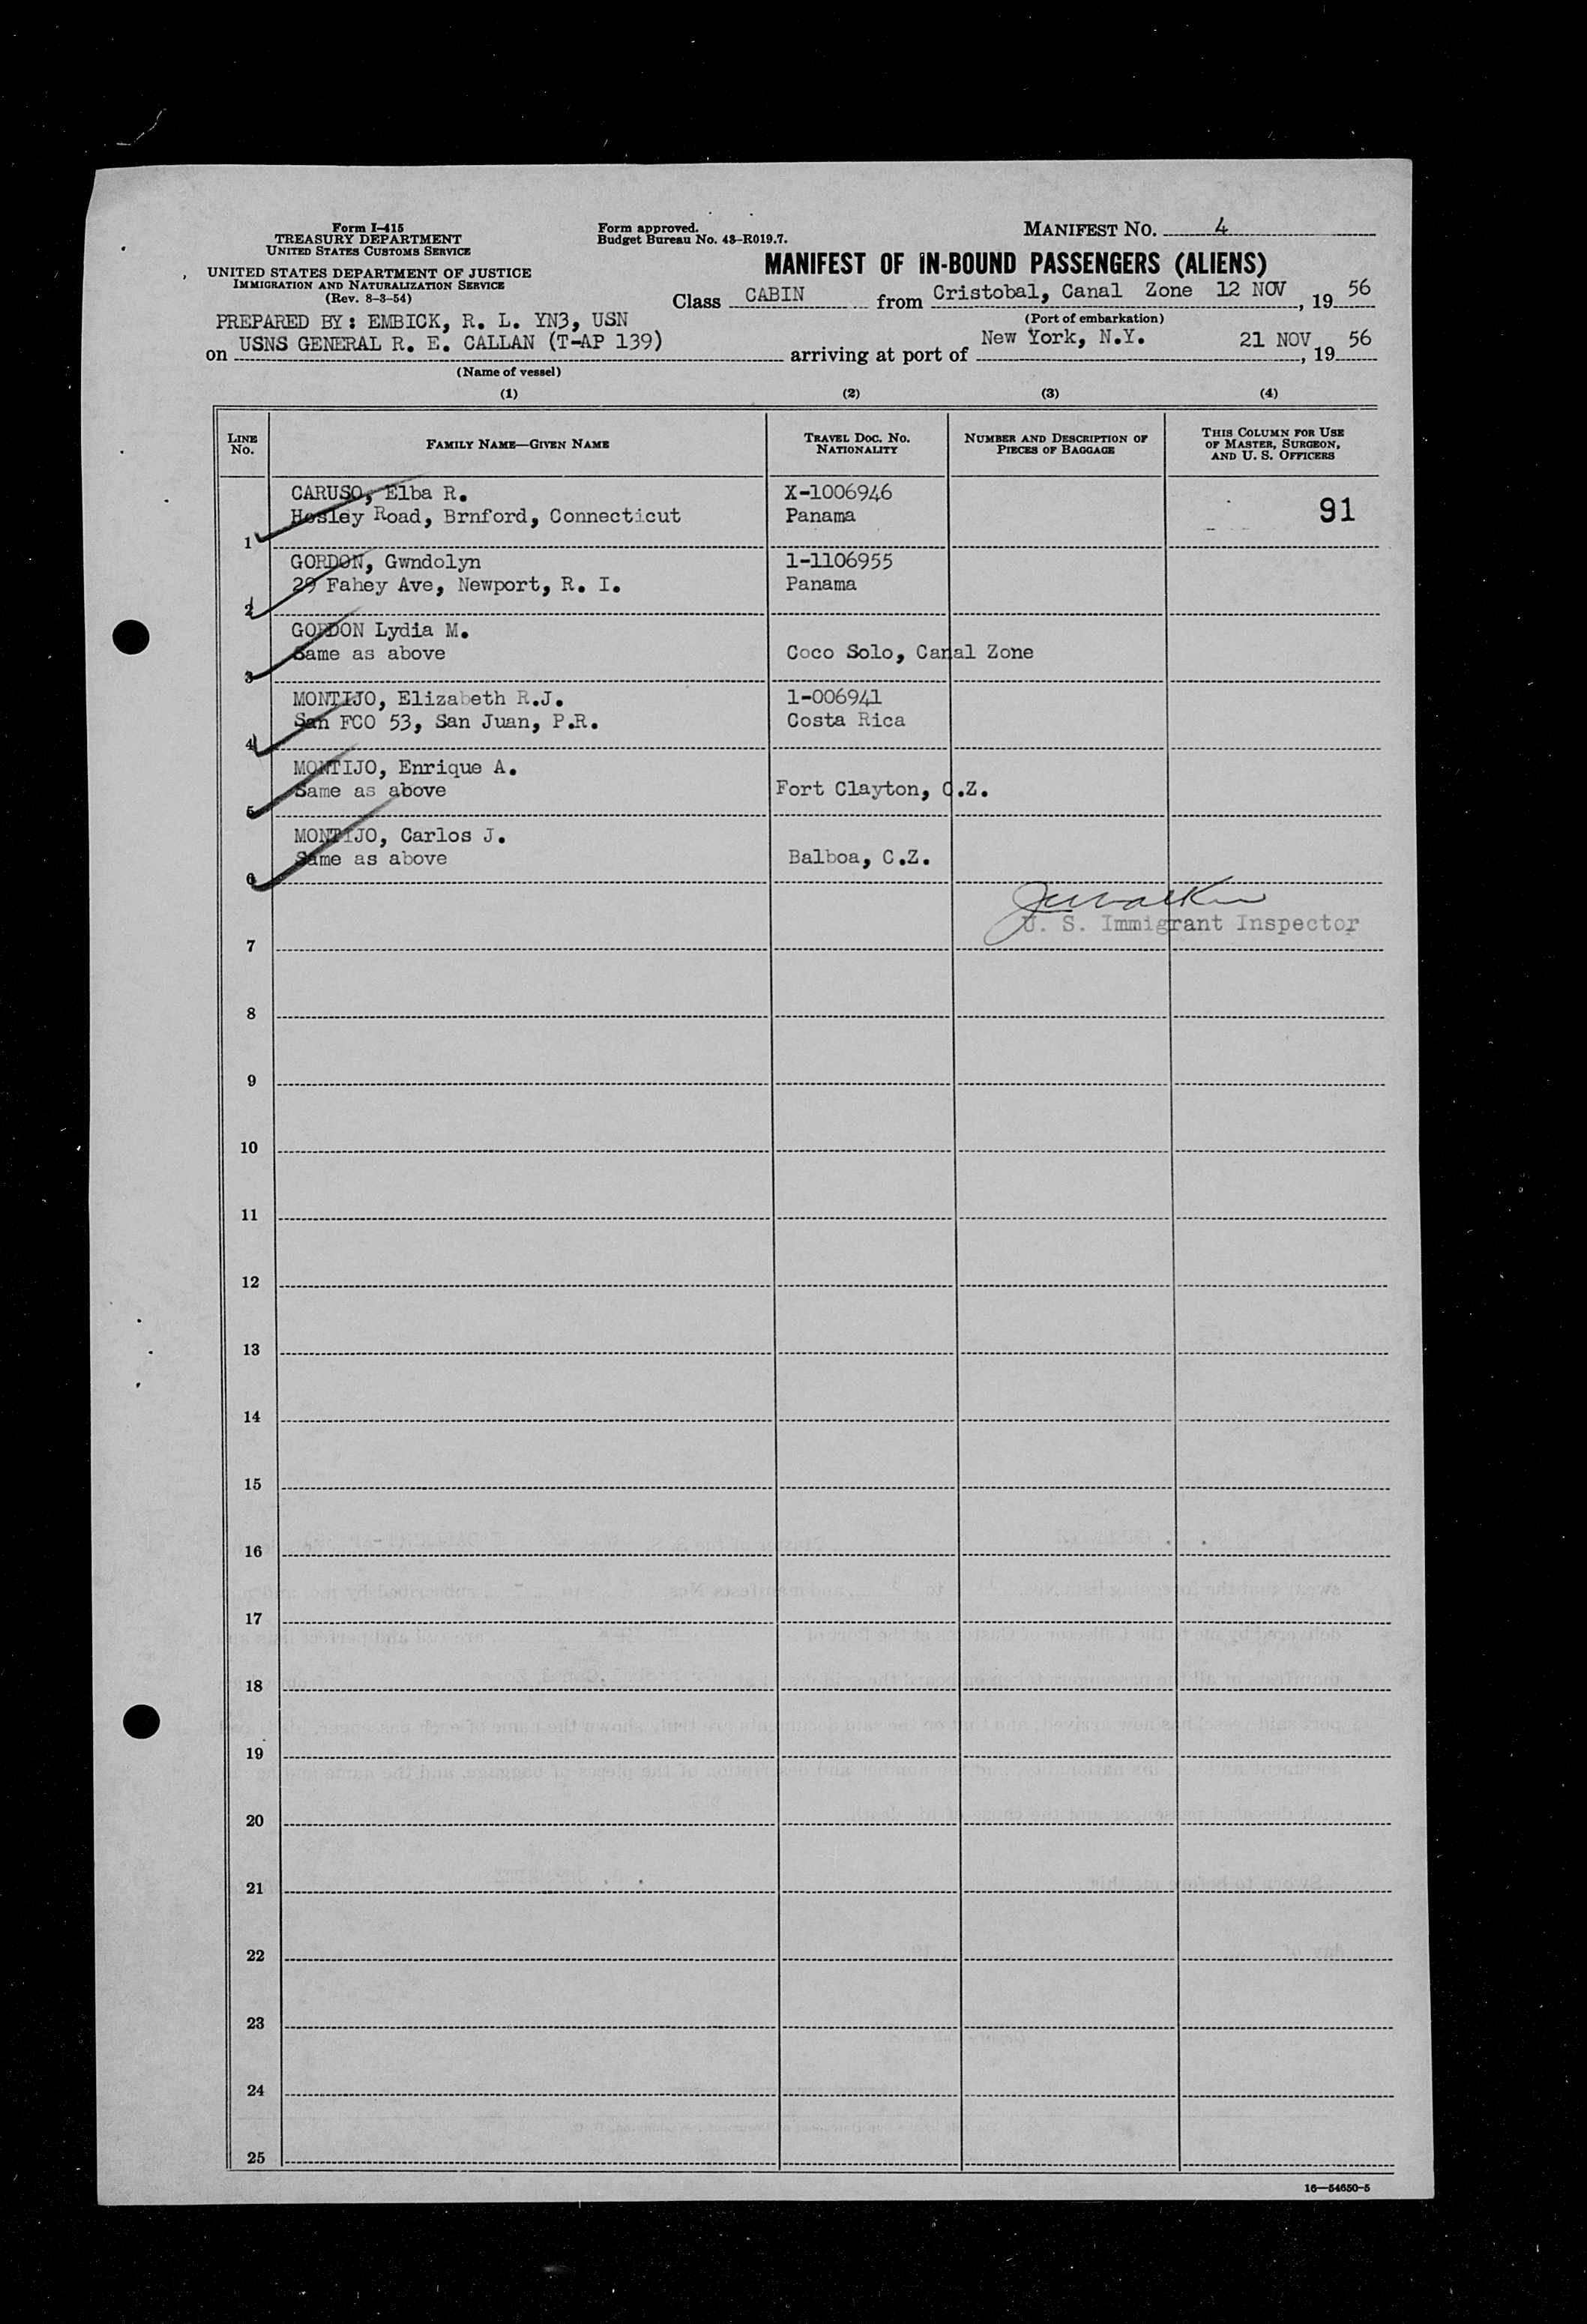 Form I-415
TREASURY DEPARTMENT
UNITED STATES CUSTOMS SERVICE
UNITED STATES DEPARTMENT OF JUSTICE
IMMIGRATION AND NATURALIZATION SERVICE
(Rev. 8-3-54)
Form approved.
Budget Bureau No. 43-R019.7.
MANIFEST No. 4
MANIFEST OF IN-BOUND PASSENGERS (ALIENS)
Class CABIN from Cristobal, Canal Zone 12 NOV, 19 56
(Port of embarkation)
PREPARED BY: EMBICK, R. L. YN3, USN
on USNS GENERAL R. E. CALLAN (T-AP 139) arriving at port of New York, N.Y. 21 NOV, 19 56
(Name of vessel)
(1) (2) (3) (4)
LINE No. FAMILY NAME—GIVEN NAME TRAVEL DOC. No. NATIONALITY NUMBER AND DESCRIPTION OF PIECES OF BAGGAGE THIS COLUMN FOR USE OF MASTER, SURGEON, AND U. S. OFFICERS
CARUSO, Elba R. X-1006946
Hosley Road, Brnford, Connecticut Panama 91
1
GORDON, Gwndolyn 1-1106955
29 Fahey Ave, Newport, R. I. Panama
2
GORDON Lydia M.
Same as above Coco Solo, Canal Zone
3
MONTIJO, Elizabeth R.J. 1-006941
San FCO 53, San Juan, P.R. Costa Rica
4
MONTIJO, Enrique A.
Same as above Fort Clayton, C.Z.
5
MONTIJO, Carlos J.
Same as above Balboa, C.Z.
6
U. S. Immigrant Inspector
7
8
9
10
11
12
13
14
15
16
17
18
19
20
21
22
23
24
25
16—54650-5